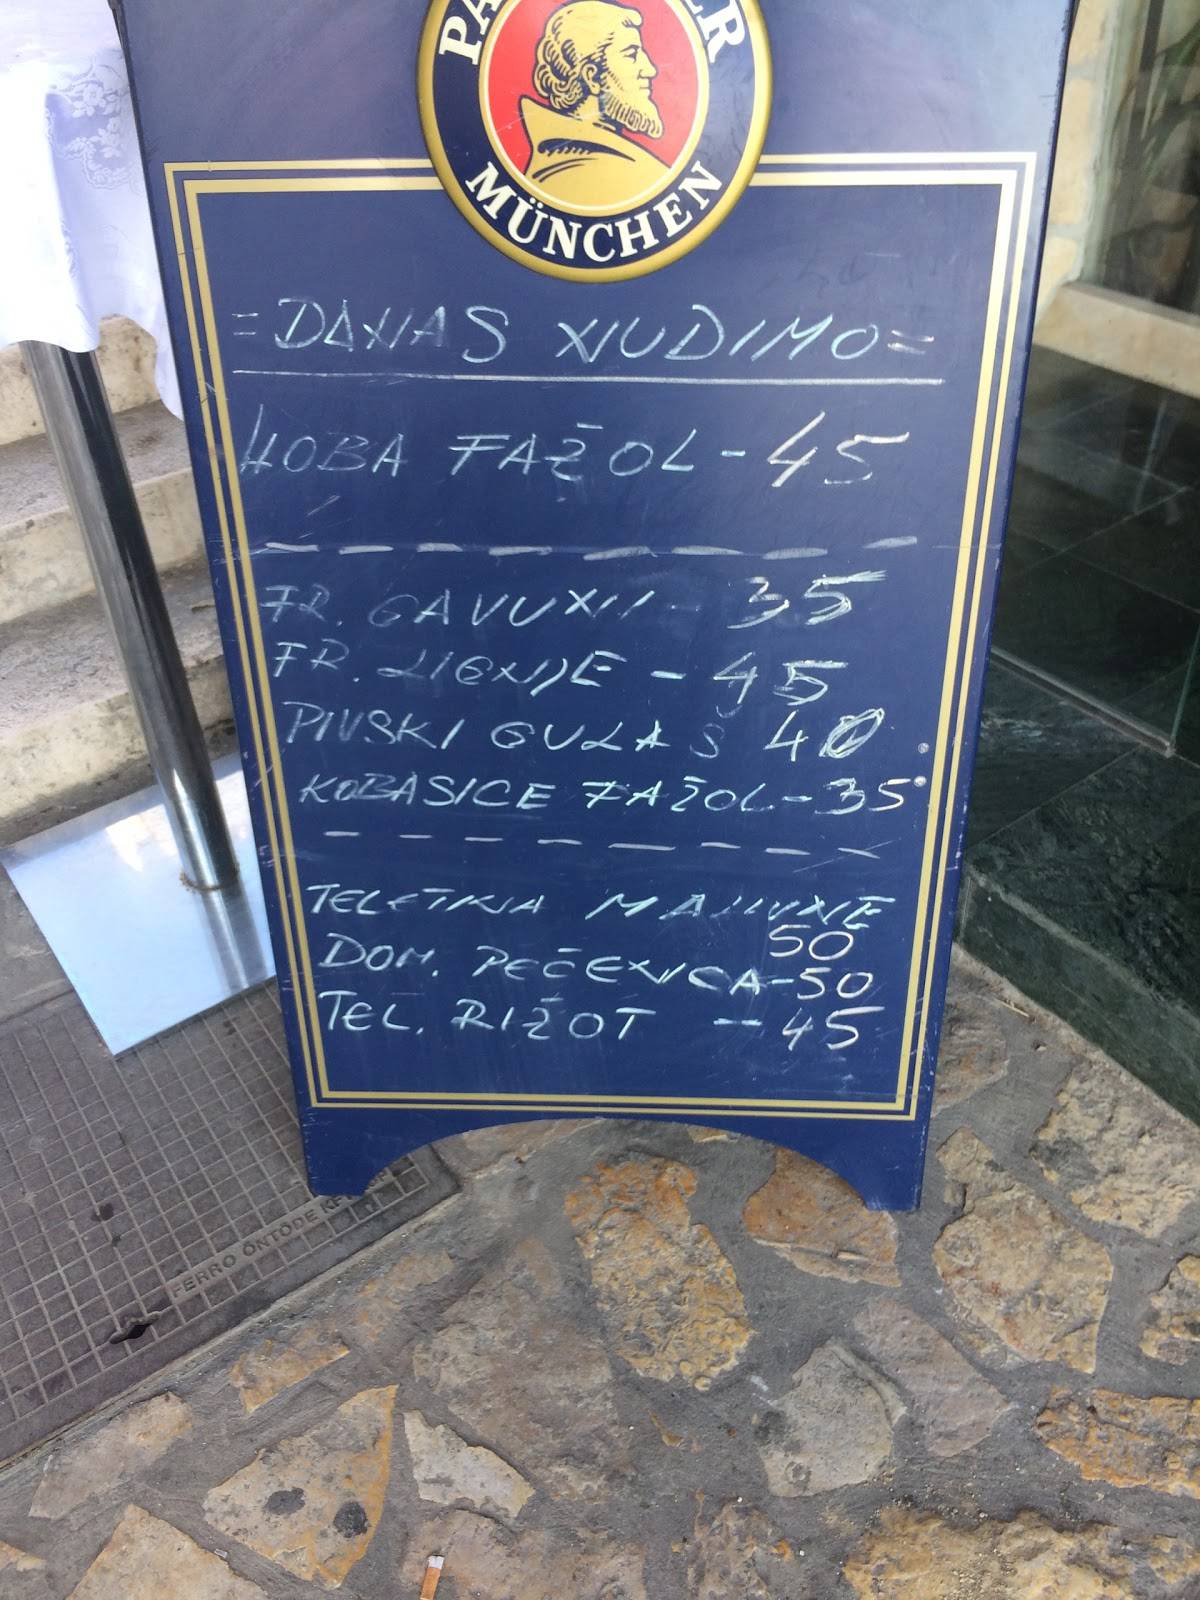 MÜNCHEN
=DANAS NUDIMO=
HOBA FAŽOL - 45
FR. GAVUNI - 35
FR. LIGNJE - 45
PIVSKI GULAŠ 40
KOBASICE FAŽOL - 35
TELETINA
50
DOM. PEČENICA - 50
TEL. RIŽOT - 45
FERRO ÖNTÖDE